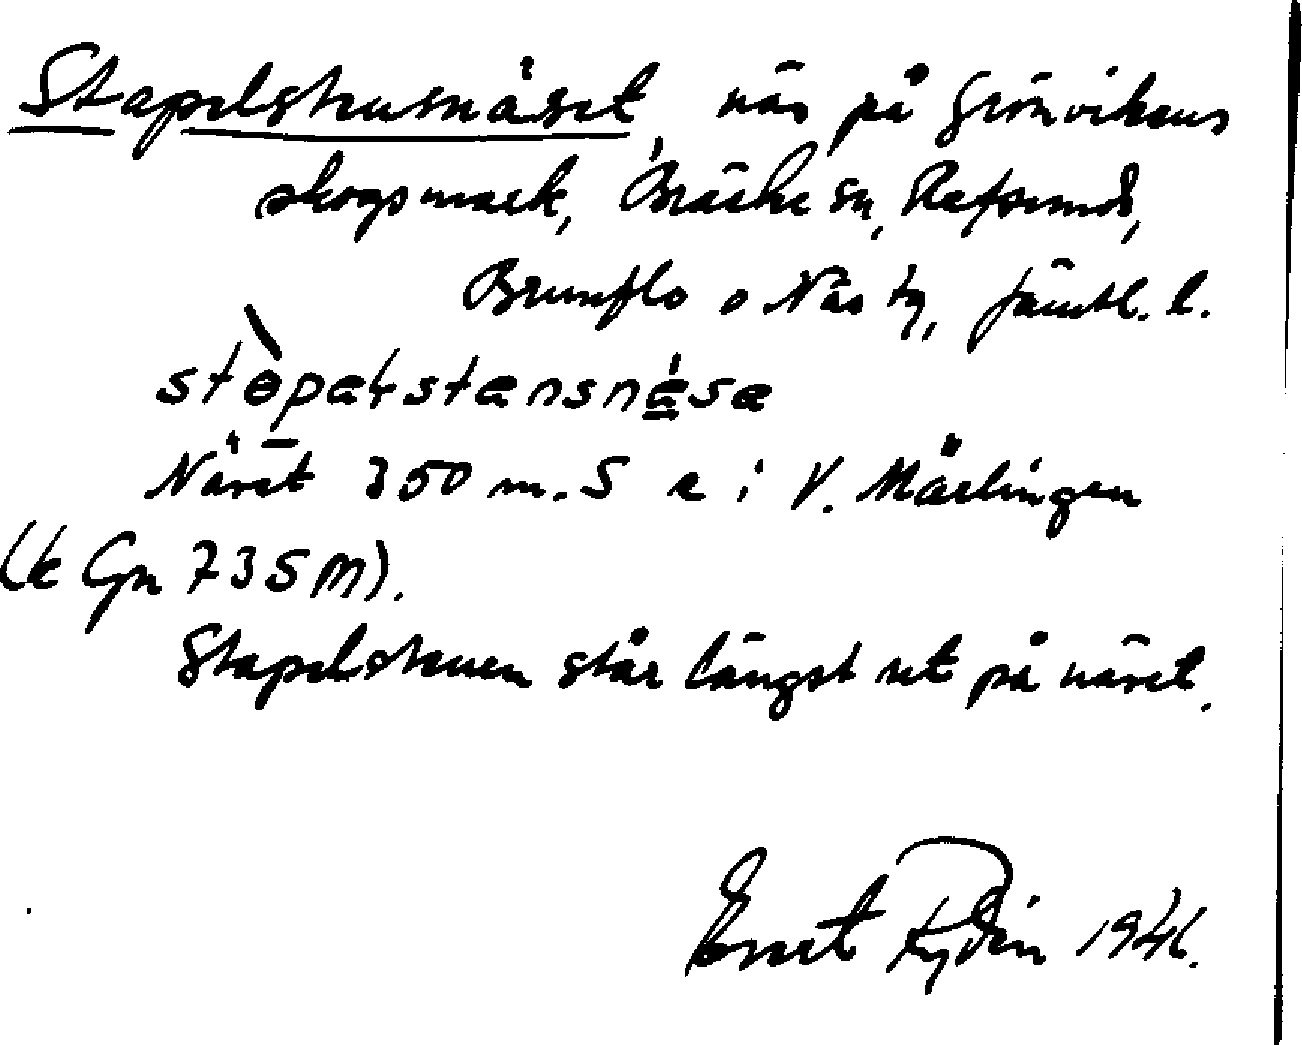 Stapelstensnäset, näs på Grönvikens
skogsmark, Bräcke sn, Refsunds,
Brunflo o Näs tg, Jämtl. l.
stɵ̀paɫstænsnä́sæ
Näset 350 m. S e i V. Märlingen
(k Gn 735 M).
Stapelstenen står längst ut på näset.
Ernst Rydin 1946.